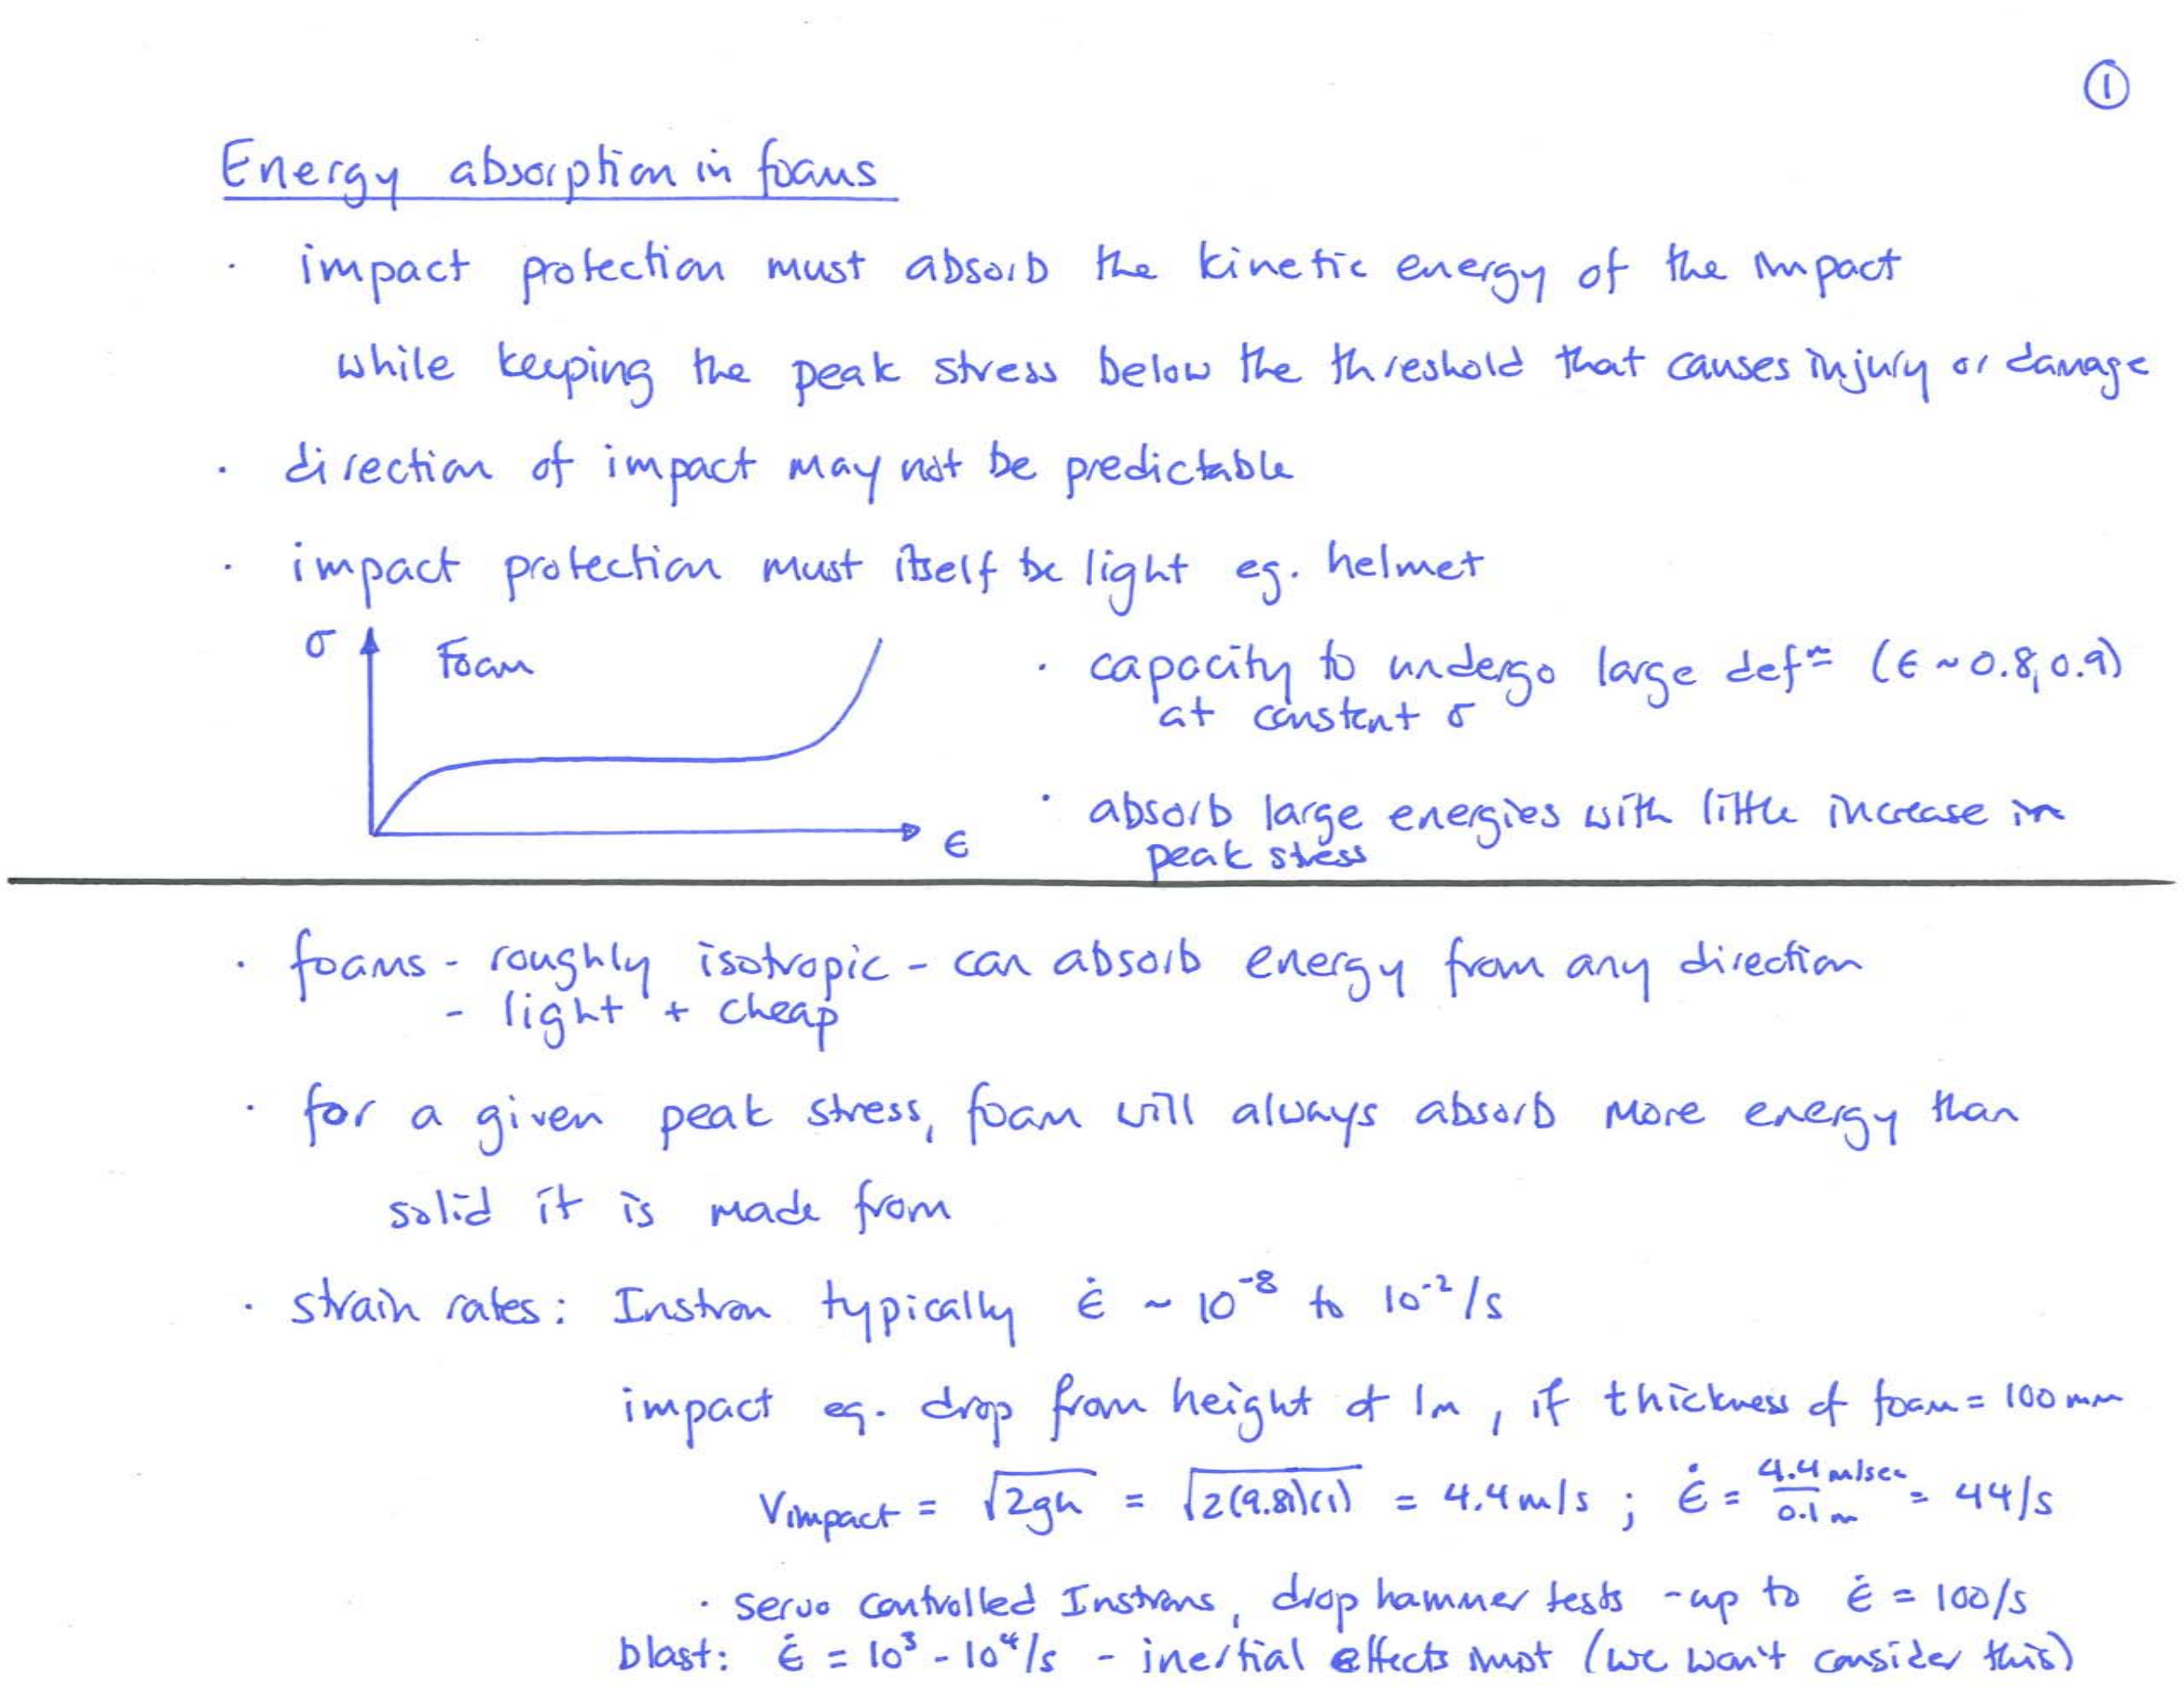 ①
Energy absorption in foams
· impact protection must absorb the kinetic energy of the impact
while keeping the peak stress below the threshold that causes injury or damage
· direction of impact may not be predictable
· impact protection must itself be light eg. helmet
σ
Foam
ϵ
· capacity to undergo large defⁿ (ϵ ~ 0.8, 0.9)
at constant σ
· absorb large energies with little increase in
peak stress
· foams - roughly isotropic - can absorb energy from any direction
- light + cheap
· for a given peak stress, foam will always absorb more energy than
solid it is made from
· strain rates: Instron typically ϵ̇ ~ 10⁻⁸ to 10⁻²/s
impact eg. drop from height of 1m, if thickness of foam = 100 mm
Vimpact = √2gh = √2(9.81)(1) = 4.4 m/s ; ϵ̇ = 4.4 m/sec / 0.1 m = 44/s
· servo controlled Instrons, drop hammer tests - up to ϵ̇ = 100/s
blast: ϵ̇ = 10³ - 10⁴/s - inertial effects impt (we won't consider this)